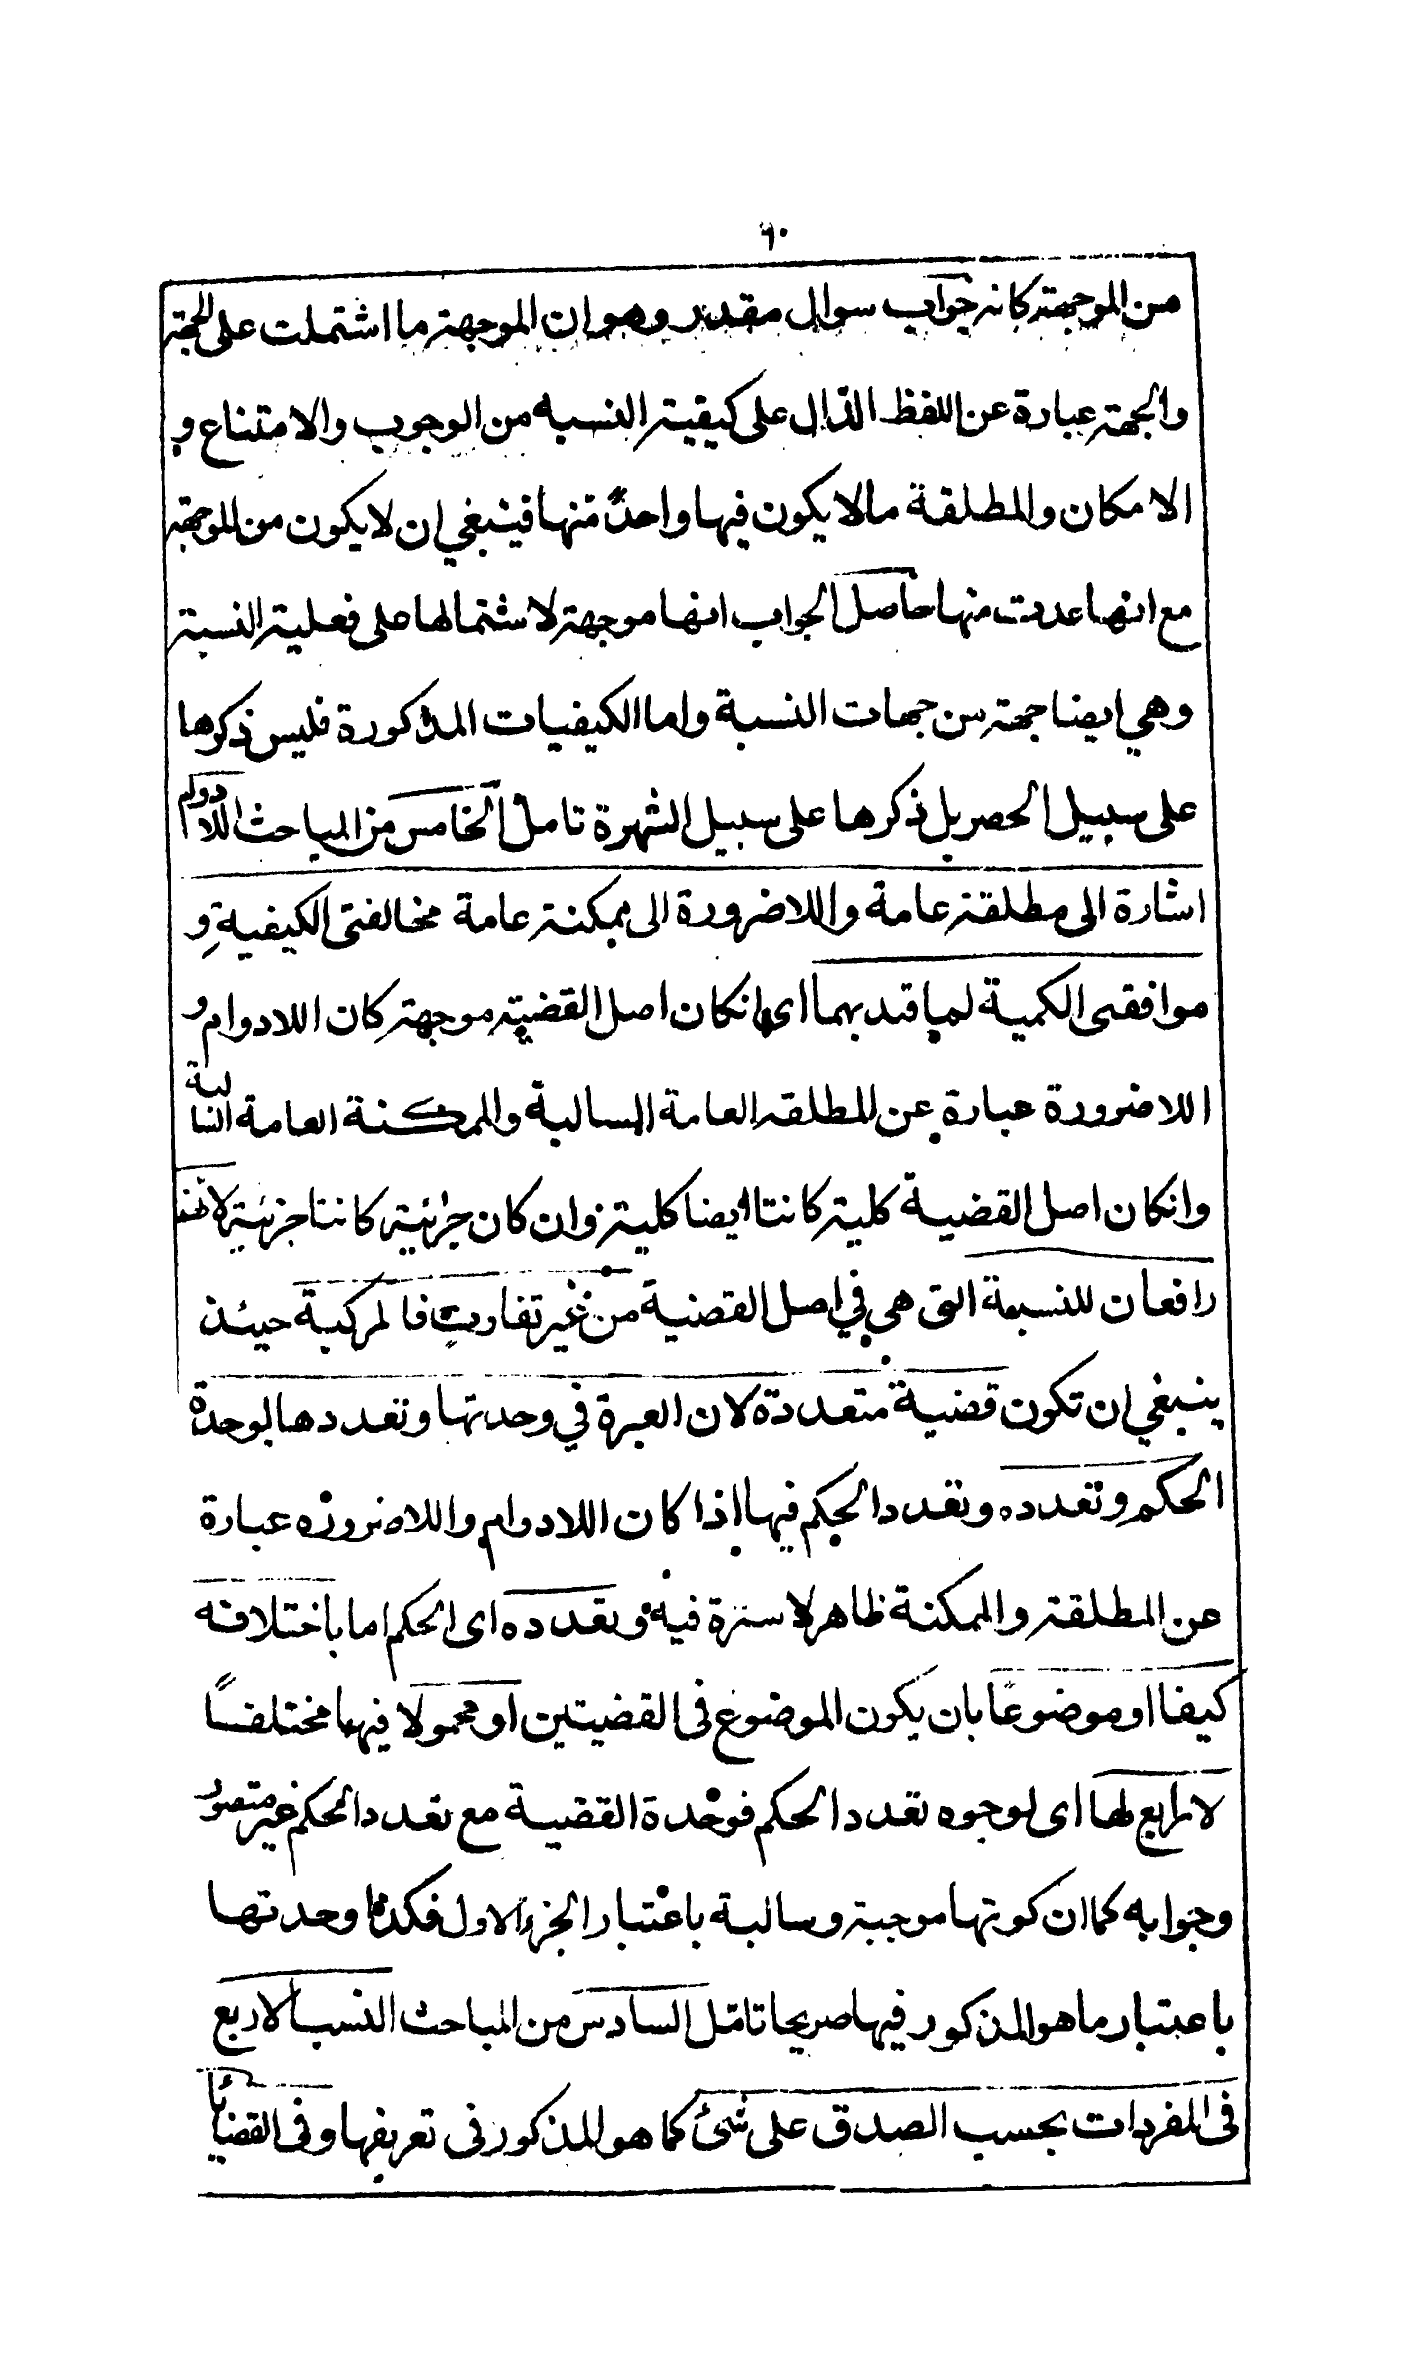 ٦٠
من الموجهة كانه جواب سوال مقدر وهو ان الموجهة ما اشتملت على الجهة
والجهة عبارة عن اللفظ الدّال على كيفية النسبه من الوجوب والامتناع و
الامكان والمطلقة مالا يكون فيها واحدٌ منها فينبغي ان لا يكون من الموجهة
مع انها عدت منها حاصل الجواب انها موجهة لاشتمالها على فعلية النسبة
وهي ايضا جهة من جهات النسبة واما الكيفيات المذكورة فليس ذكرها
على سبيل الحصر بل ذكرها على سبيل الشهرة تامل الخامس من المباحث اللادوام
اشارة الى مطلقة عامة واللاضرورة الى ممكنة عامة مخالفتى الكيفية و
موافقى الكمية لما قيد بهما اى انكان اصل القضية موجهة كان اللادوام و
اللاضرورة عبارة عن المطلقة العامة السالبة والممكنة العامة السالبة
وانكان اصل القضية كلية كانتا ايضا كلية وان كان جزئية كانتا جزئية لانهما
رافعان للنسبة التى هي في اصل القضية من غير تفاوت فالمركبة حينئذ
ينبغي ان تكون قضية متعددة لان العبرة في وحدتها وتعددها لوحدة
الحكم وتعدده وتعدد الحكم فيها اذا كان اللادوام واللاضرورة عبارة
عن المطلقة والممكنة ظاهر لا سترة فيه وتعدده اى الحكم اما باختلافه
كيفا او موضوعًا بان يكون الموضوع فى القضيتين او محمولا فيهما مختلفًا
لا رابع لها اى لوجوه تعدد الحكم فوحدة القضية مع تعدد الحكم غير متصور
وجوابه كما ان كونها موجبة وسالبة باعتبار الجزء الاول فكذا وحدتها
باعتبار ما هو المذكور فيها صريحا تامّل السادس من المباحث النسب الاربع
فى المفردات بحسب الصدق على شئ كما هو المذكور فى تعريفها وفى القضايا